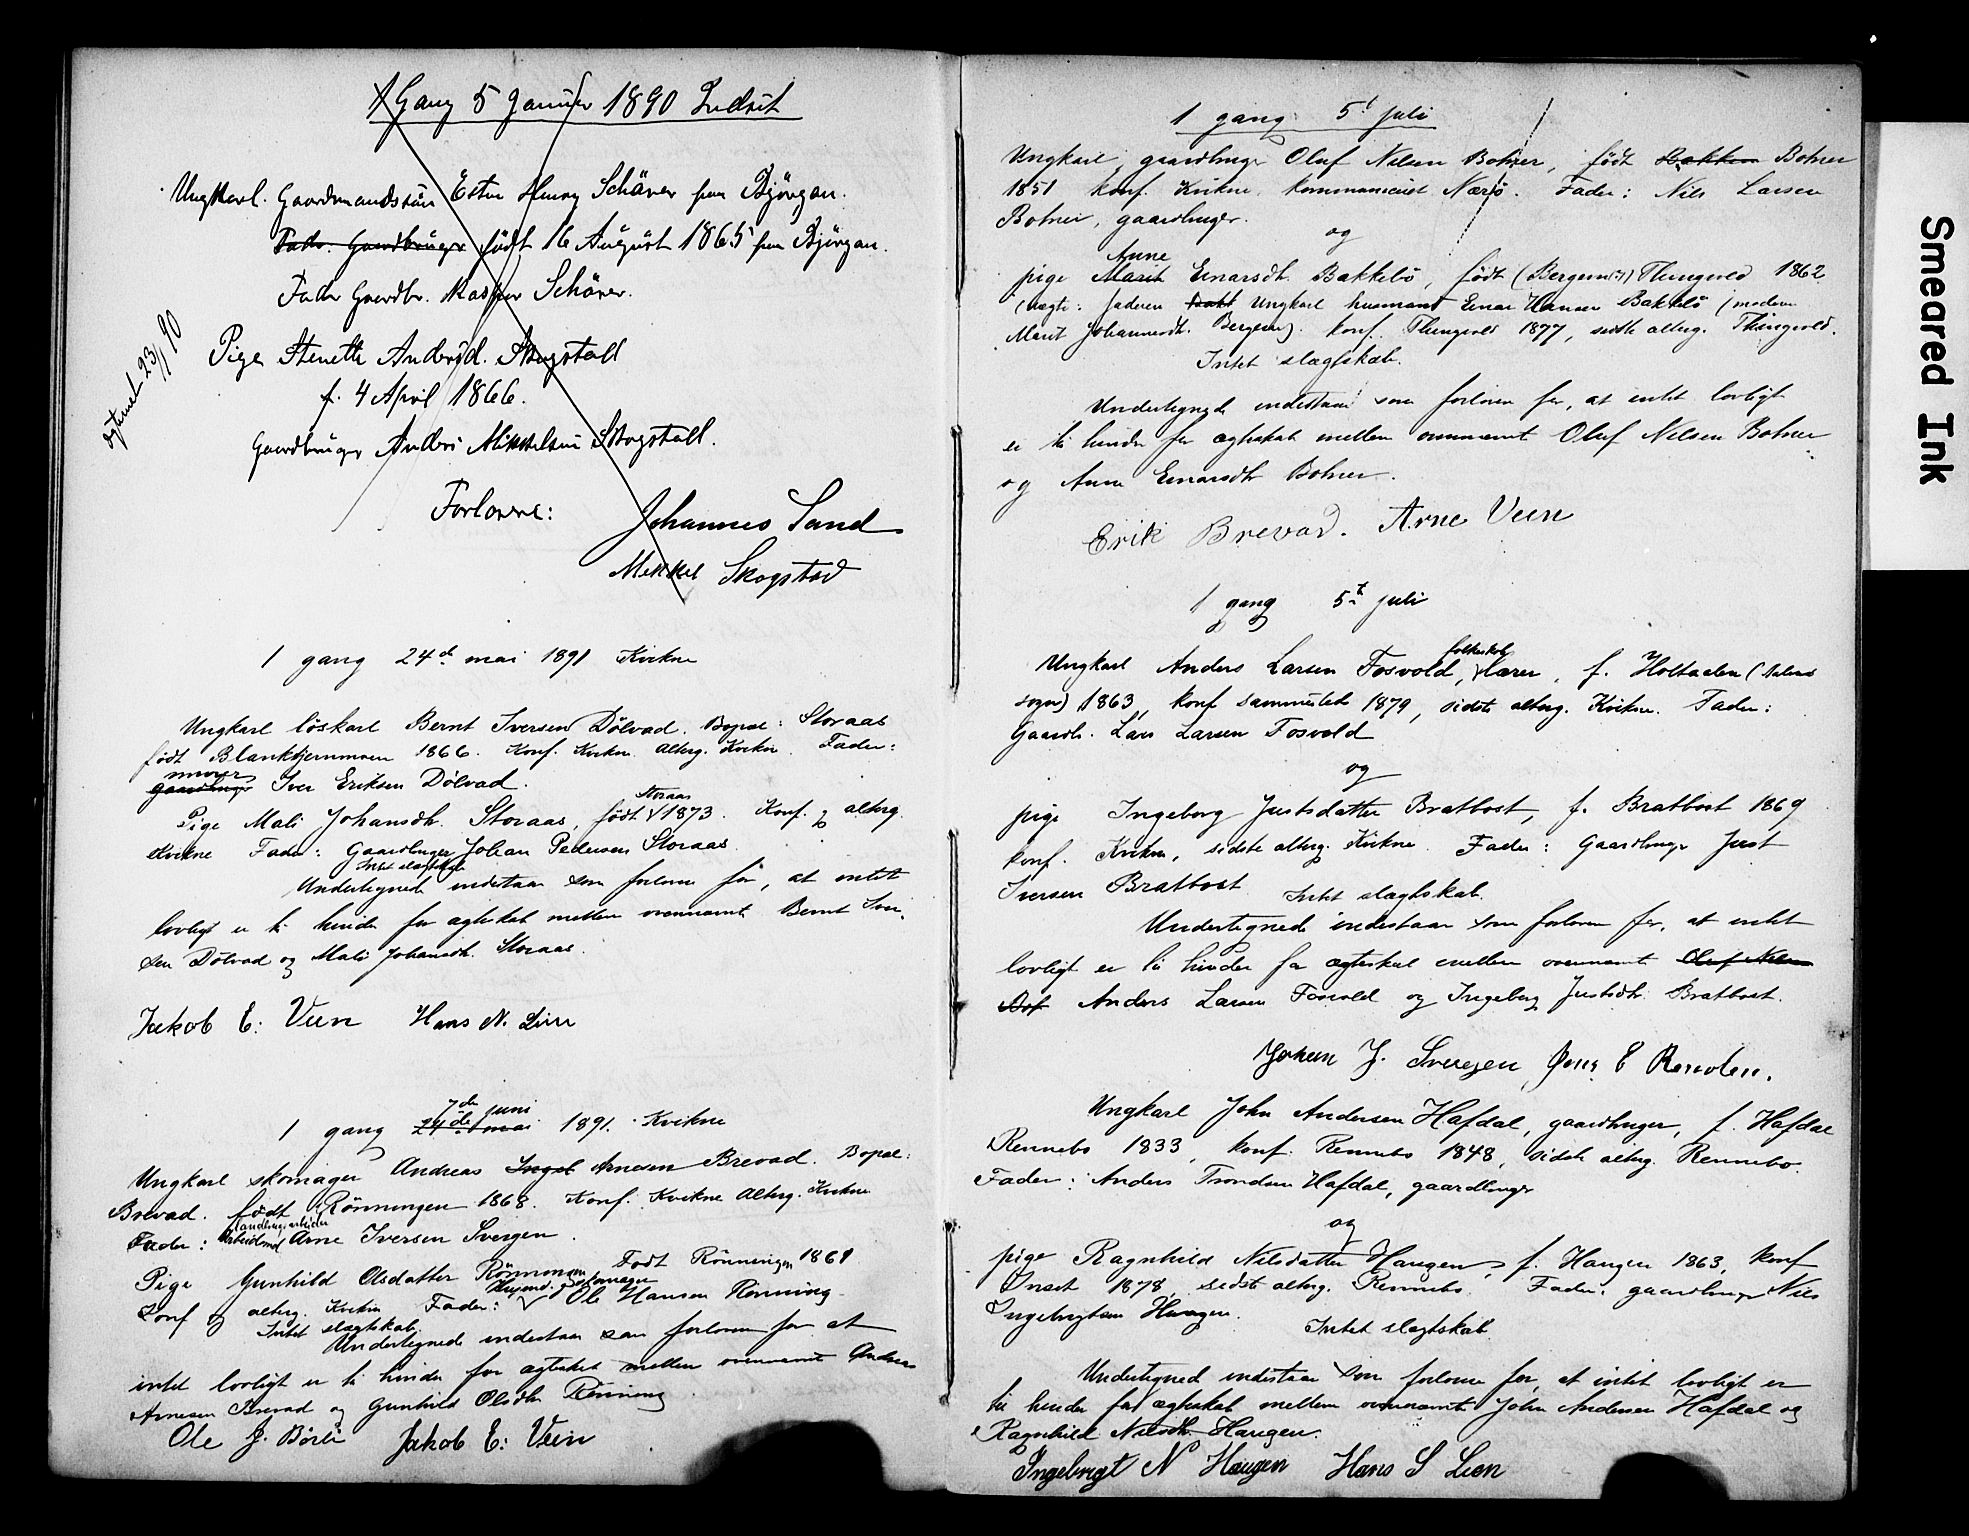 1 Gang 5 Januar 1890 Indset
Ungkarl. Gaardmandssøn Henry Schäver fra Bjørgan.
Fader. Gaardbruger født 16 August 1865 fra Bjørgan.
Fader Gaardbr. Kasper Schäver.
Pige Stenette Andersd. Skogstad
f. 4 April 1866.
Gaardbruger Anders Mikkelsen Skogstad.
23/1 90
Forlovere:
Johannes Sand
Mikkel Skogstad
1 gang 24de mai 1891 Kvikne
Ungkarl løskarl Bernt Iversen Dölvad. Bopæl: Storaas
født Blanktjernmoen 1866. Konf. Kvikne. Alterg. Kvikne. Fader:
murer
gaardbruger Iver Eriksen Dölvad.
Storaas
Pige Mali Johansdtr. Storaas, født 1873. Konf. og alterg.
Kvikne Fader: Gaardbruger Johan Pedersen Storaas.
Intet slægtskab
Undertegnede indestaar som forlovere for, at intet
lovligt er til hinder for ægteskab mellem ovennævnte Bernt Iver-
sen Dölvad og Mali Johansdtr. Storaas.
Jakob E: Veen Hans N. Lien
7de juni
1 gang 24de mai 1891. Kvikne
Ungkarl skomager Andreas Ingel Arnesen Brevad. Bopæl:
Brevad. født Rönningen 1868. Konf. Kvikne Alterg. Kvikne
Fader: Arbeidsmd Arne Iversen Svergen.
Pige Gunhild Olsdatter Rönningen Født Rönningen 1861
Husmd. og skomager
Konf og alterg. Kvikne Fader: Ole Hansen Rönning
Intet slægtskab.
Undertegnede indestaar som forlovere for at
intet lovligt er til hinder for ægteskab mellem ovennævnte Andreas
Arnesen Brevad og Gunhild Olsdtr Rönning
Ole J. Börli Jakob E: Veen
1 gang 5t juli
Ungkarl, gaardbruger Oluf Nilsen Bohner, født Bakken Bohner
1851 konf. Kvikne, kommuniceret Nærö. Fader: Nils Larsen
Bohner, gaardbruger.
og
Anne
pige Marit Einarsdtr. Bakkelö, født (Bergemo) Thingvold 1862
(uægte: faderen Ungkarl husmand Einar Hansen Bakkelö (moderen
Marit Johannesdtr. Bergem). konf. Thingvold 1877, sidste alterg. Thingvold.
Intet slægtskab.
Undertegnede indestaar som forlovere for, at intet lovligt
er til hinder for ægteskab mellem ovennævnte Oluf Nilsen Bohner
og Anne Einarsdtr Bohner.
Erik Brevad. Arne Veen
1 gang 5t juli
folkeskole
Ungkarl Anders Larsen Fosvold, lærer, f. Holtaalen (Aalens
sogn) 1863, konf sammesteds 1879, sidste alterg. Kvikne. Fader:
Gaardb. Lars Larsen Fosvold
og
pige Ingeborg Justsdatter Bratbost, f. Bratbost 1869
konf. Kvikne, sidste alterg. Kvikne. Fader: Gaardbruger Just
Iversen Bratbost Intet slægtskab.
Undertegnede indestaar som forlovere for, at intet
lovligt er til hinder for ægteskab mellem ovennævnte Oluf Nilsen
Anders Larsen Fosvold og Ingeborg Justsdtr. Bratbost.
Johan J. Svergen, Jons E Renolen.
Ungkarl John Andersen Hafdal, gaardbruger, f. Hafdal
Rennebo 1833, konf. Rennebo 1848, sidste alterg. Rennebo.
Fader: Anders Trondsen Hafdal, gaardbruger
og
pige Ragnhild Nilsdatter Haugen, f. Haugen 1863, konf
Inset 1878, sidste alterg. Rennebo. Fader: gaardbruger Nils
Ingebrigtsen Haugen.
Intet slægtskab.
Undertegnede indestaar som forlovere for, at intet lovligt er
til hinder for ægteskab mellem ovennævnte John Andersen Hafdal og
Ragnhild Nilsdtr. Haugen.
Ingebrigt N Haugen Hans S Lien
Smeared Ink